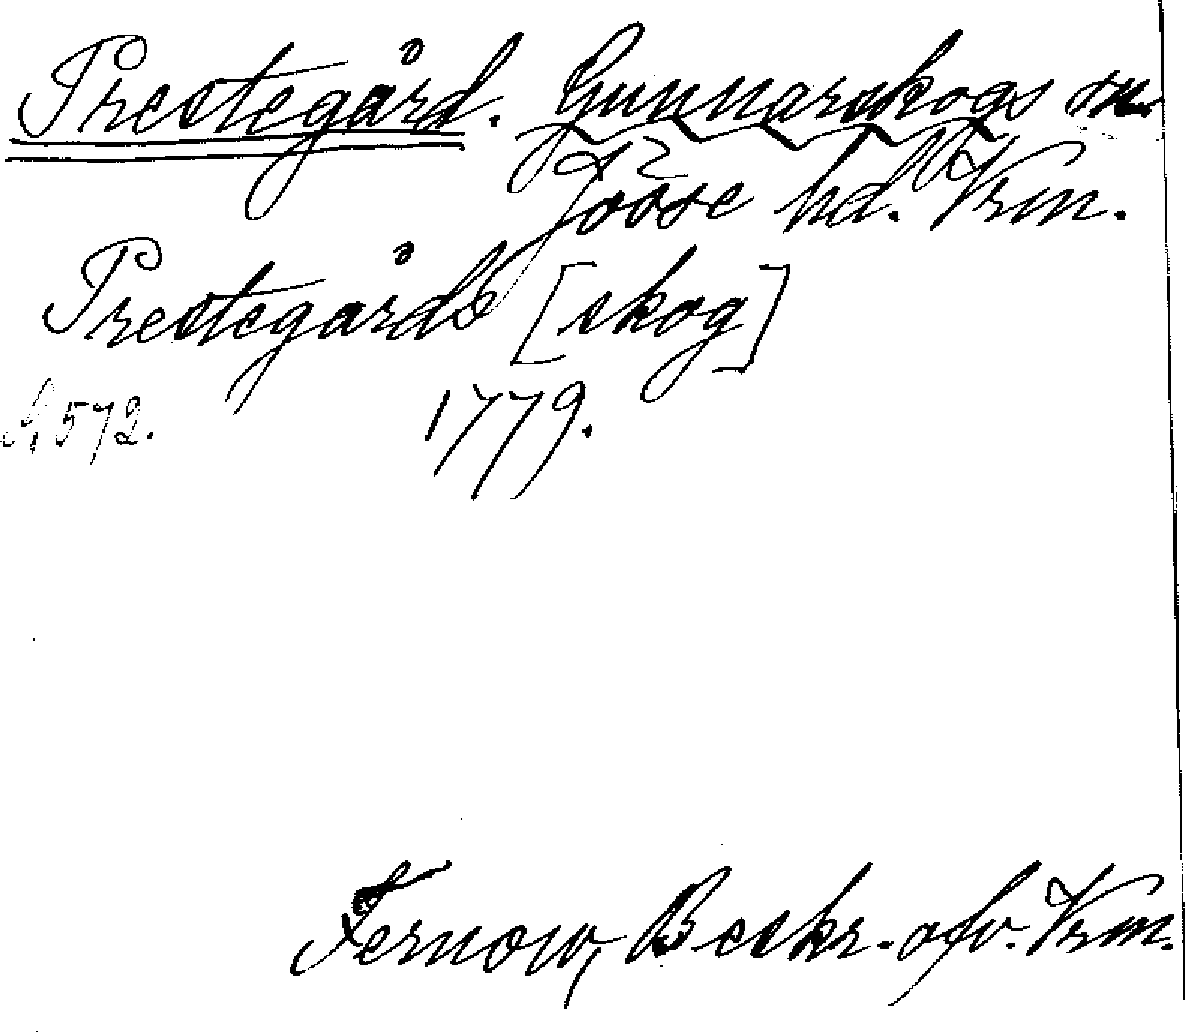 Prestegård. Gunnarskogs sn.
Jösse hd. Vrm.
Prestegårds [skog]
s, 572. 1779.
Fernow, Beskr. öfv. Vrm.